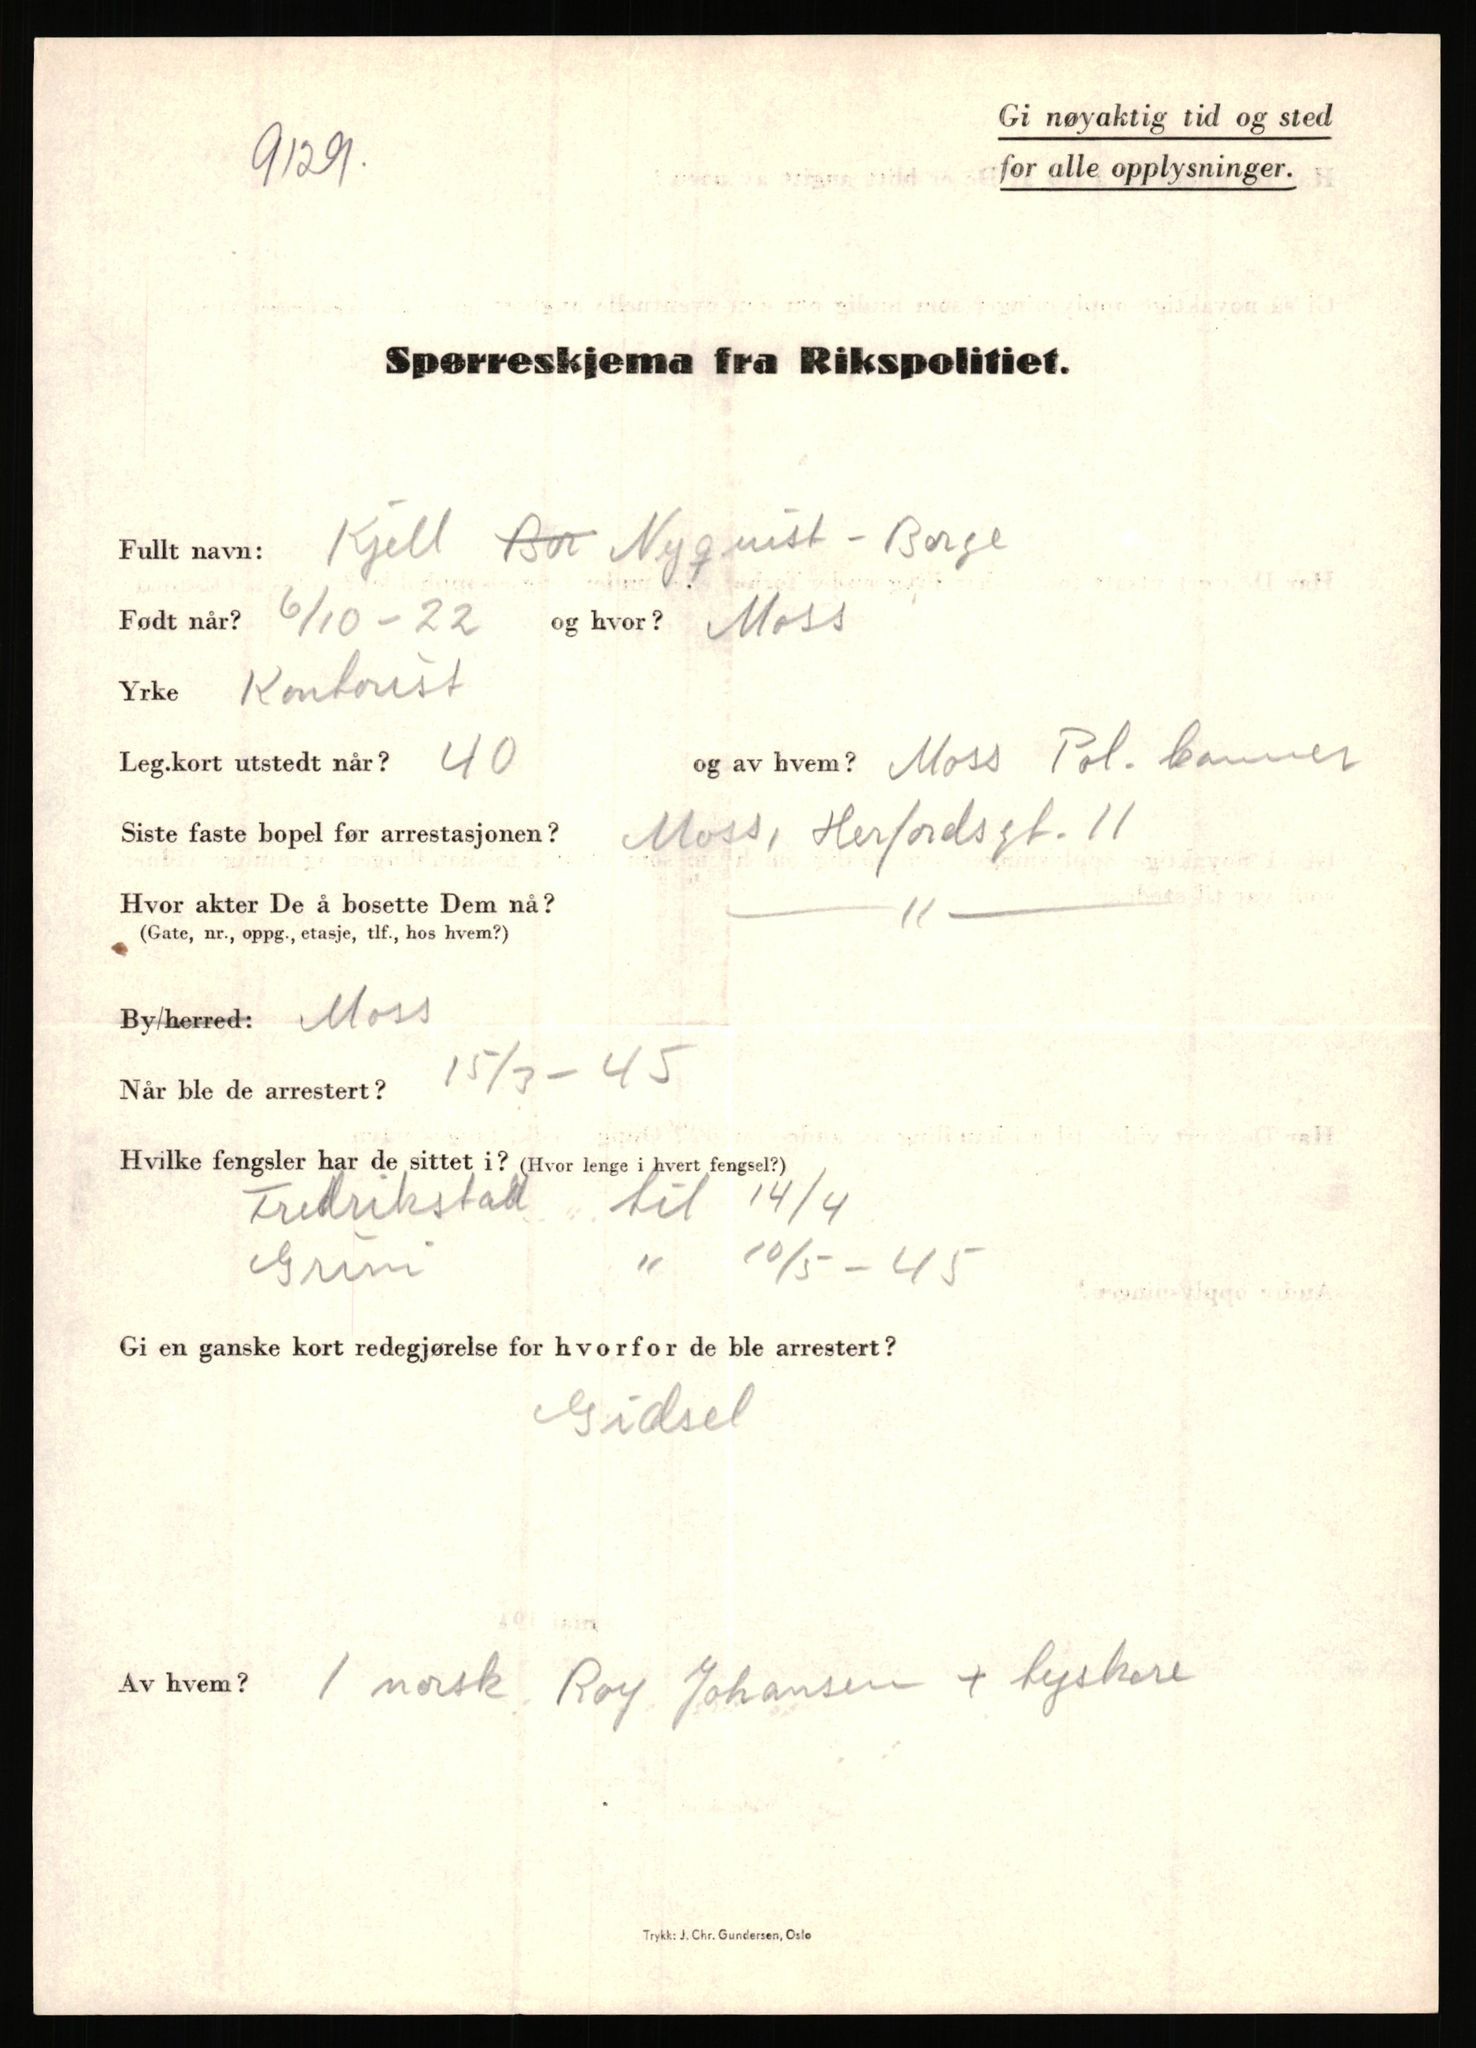 9129.
Gi nøyaktig tid og sted
for alle opplysninger.
Spørreskjema fra Rikspolitiet.
Fullt navn: Kjell Bor Nyquist - Borge
Født når? 6/10 - 22 og hvor? Moss
Yrke Kontorist
Leg.kort utstedt når? 40 og av hvem? Moss Pol. kammer
Siste faste bopel før arrestasjonen? Moss, Herfordsgt. 11
Hvor akter De å bosette Dem nå? — " —
(Gate, nr., oppg., etasje, tlf., hos hvem?)
By/herred: Moss
Når ble de arrestert? 15/3 - 45
Hvilke fengsler har de sittet i? (Hvor lenge i hvert fengsel?)
Fredrikstad til 14/4
Grini " 10/5 - 45
Gi en ganske kort redegjørelse for hvorfor de ble arrestert?
Gidsel
Av hvem? 1 norsk Roy Johansen + tyskere
Trykk: J. Chr. Gundersen, Oslo